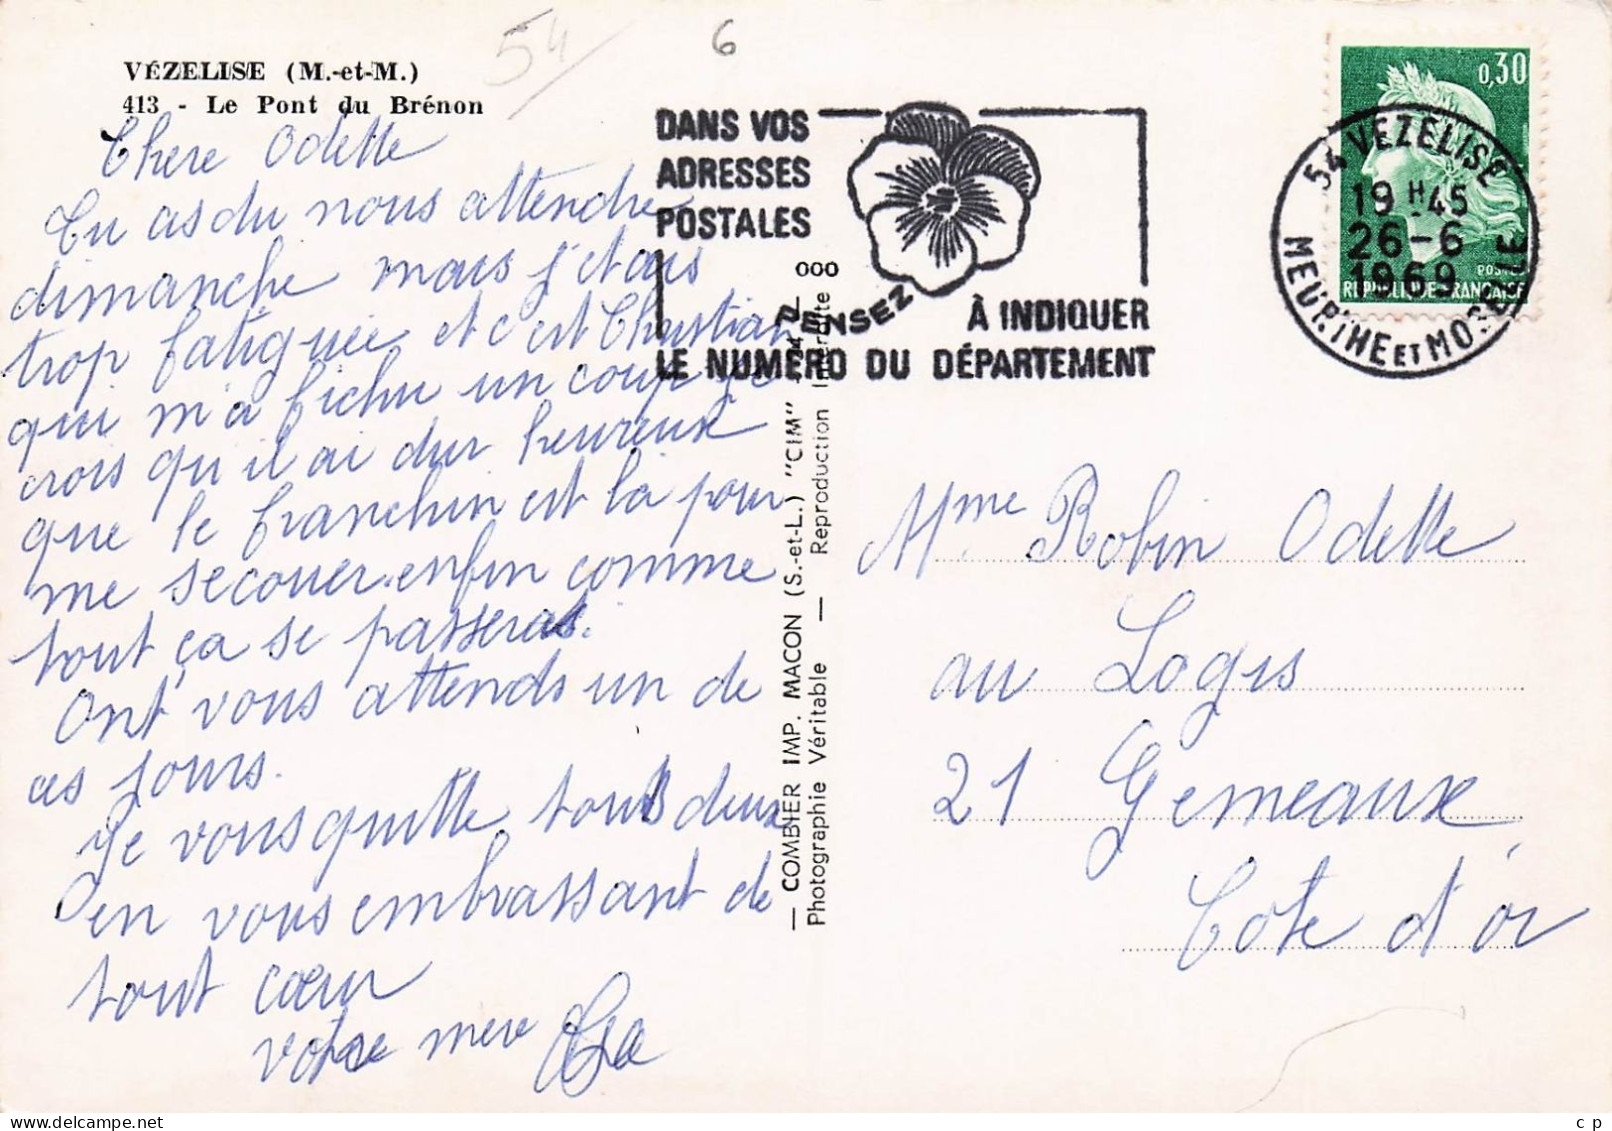 VÉZELISE (M.-et-M.)
413 - Le Pont du Brénon
54
6
Chere Odette
Tu as du nous attendre
dimanche mais j'etais
trop fatiguée et c'est Christian
qui m'a fichu un coup je
crois qu'il ai dur heureux
que le franchin est la pour
me secouer enfin comme
tout ça se passeras.
Ont vous attends un de
ces jours.
Je vous quitte tout deux
en vous embrassant de
tout cœur
votre mere
DANS VOS
ADRESSES
POSTALES
PENSEZ
À INDIQUER
LE NUMÉRO DU DÉPARTEMENT
0,30
POSTES
REPUBLIQUE FRANÇAISE
54 VEZELISE
19 H 45
26-6
1969
MEURTHE ET MOSELLE
— COMBIER IMP. MACON (S.-et-L.) "CIM"
Photographie Véritable — Reproduction Interdite
ooo
Mme Robin Odette
au Logis
21 Gemeaux
Cote d'or
c p